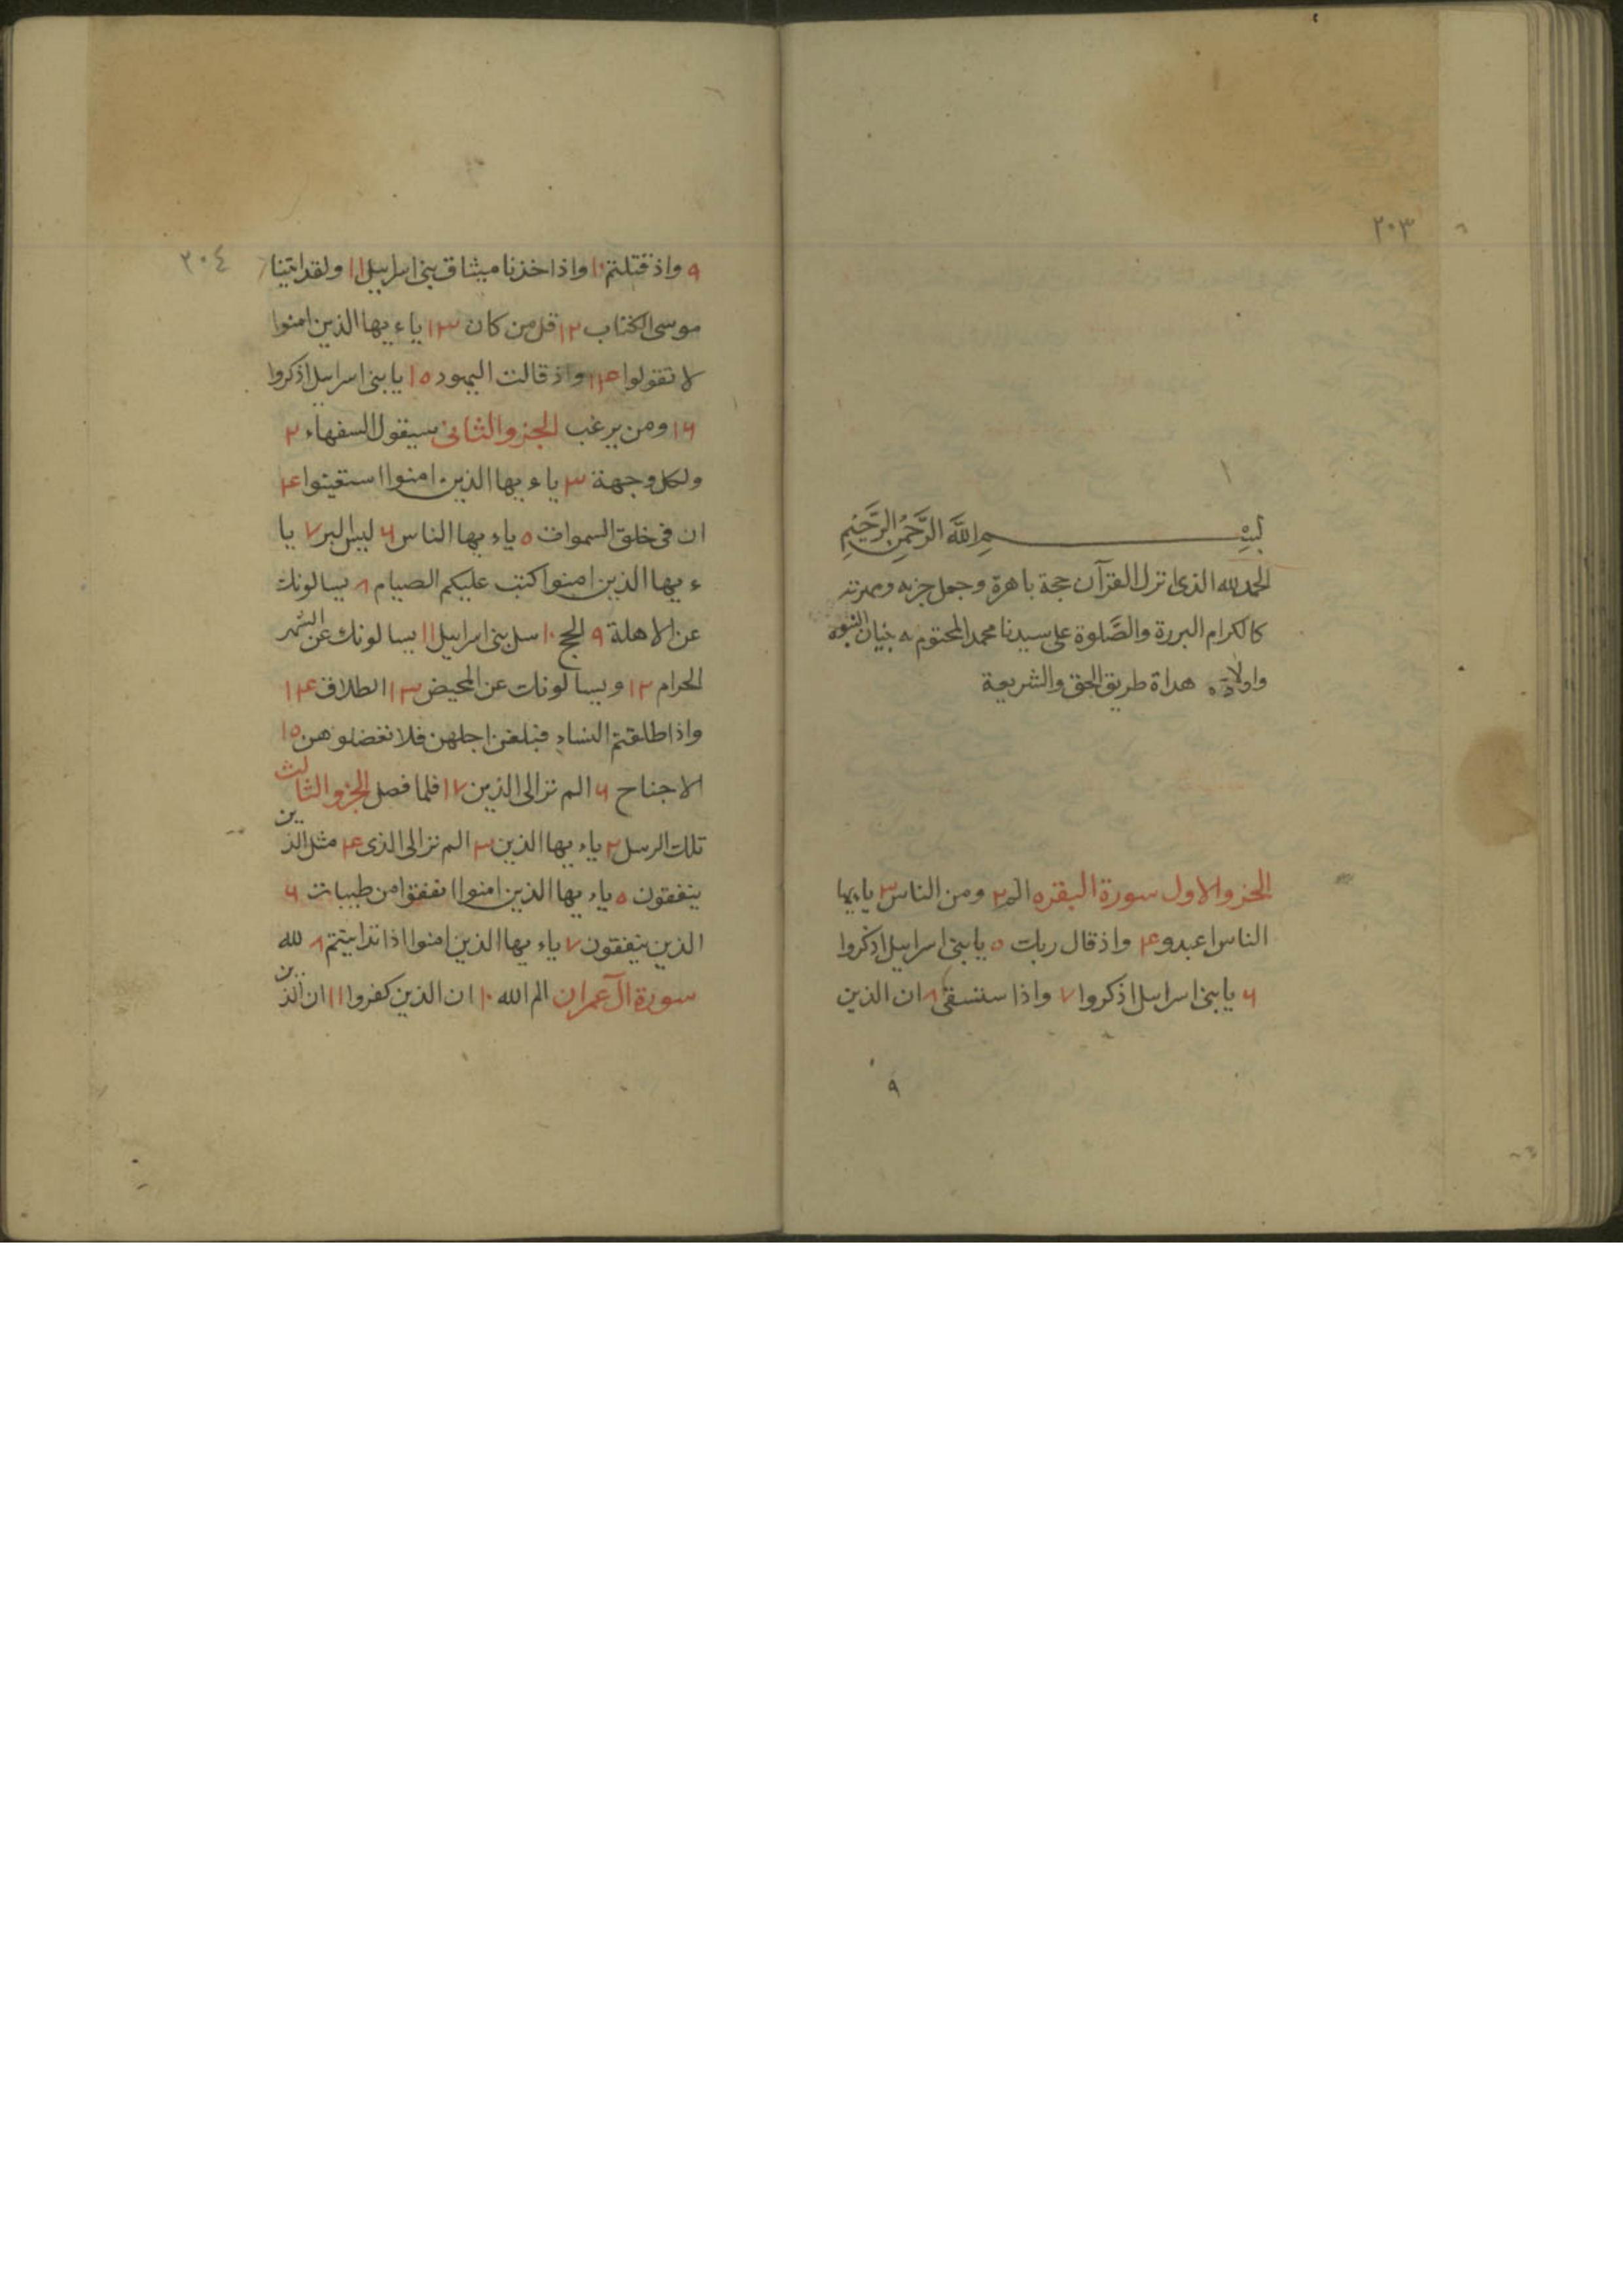 ٢٠٣
بسم الله الرَّحْمنِ الرَّحِيْمِ
الحمد لله الذى نزل القرآن حجة باهرة وجعل حزبه
كالكرام البررة والصَّلوة على سيدنا محمد المختوم به بنيان النبوه
واولاده هداة طريق الحق والشريعة
الجزو الاول سورة البقره الم ٢ ومن الناس ٣ ياءيها
الناس اعبدو ٤ واذ قال ربك ٥ يابنى اسراييل اذكروا
٦ يابنى اسراييل اذكروا ٧ واذا ستسقى ٨ ان الذين
٩
٢٠٤
٩ واذ قتلتم ١٠ واذ اخذنا ميثاق بنى اسراييل ١١ ولقد اتينا
موسى الكتاب ١٢ قل من كان ١٣ ياءيها الذين امنوا
لا تقولوا ١٤ واذ قالت اليهود ١٥ يا بنى اسراييل اذكروا
١٦ ومن يرغب الجزو الثانى سيقول السفهاء ٢
ولكل وجهة ٣ ياءيها الذين امنوا استعينوا ٤
ان فى خلق السموات ٥ ياءيها الناس ٦ ليس البر ٧ يا
ءيها الذين امنوا كتب عليكم الصيام ٨ يسالونك
عن الاهلة ٩ الحج ١٠ سل بنى اسراييل ١١ يسالونك عن الشهر
الحرام ١٢ ويسالونك عن المحيض ١٣ الطلاق ١٤
واذا طلقتم النساء فبلغن اجلهن فلا تعضلوهن ١٥
لا جناح ٦ الم تر الى الذين ١٧ فلما فصل الجزو الثالث
تلك الرسل ٢ ياءيها الذين ٣ الم تر الى الذى ٤ مثل الذين
ينفقون ٥ ياءيها الذين امنوا انفقوا من طيبات ٦
الذين ينفقون ٧ ياءيها الذين امنوا اذا تداينتم ٨ لله
سورة آل عمران الم الله ١٠ ان الذين كفروا ١١ ان الذين